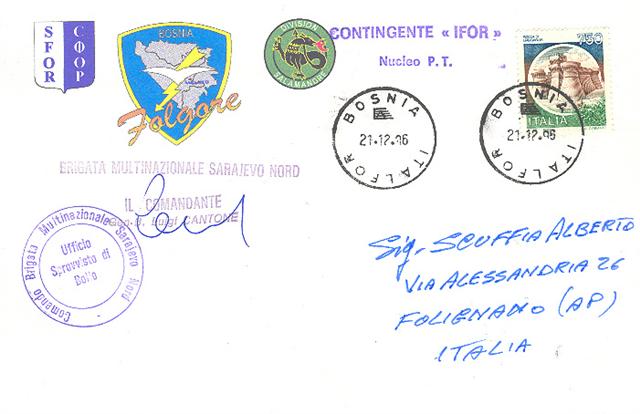 SFOR
СФОР
BOSNIA
Folgore
DIVISION
SALAMANDRE
CONTINGENTE « IFOR »
Nucleo P.T.
750
ITALIA
BOSNIA
21·12.96
ITALFOR
BOSNIA
21·12.96
ITALFOR
BRIGATA MULTINAZIONALE SARAJEVO NORD
IL COMANDANTE
Gen.B. Luigi CANTONE
Comando Brigata Multinazionale Sarajevo Nord
Ufficio
Sprovvisto di
Bollo
Sig. SCUFFIA ALBERTO
VIA ALESSANDRIA 26
FOLIGNANO (AP)
ITALIA